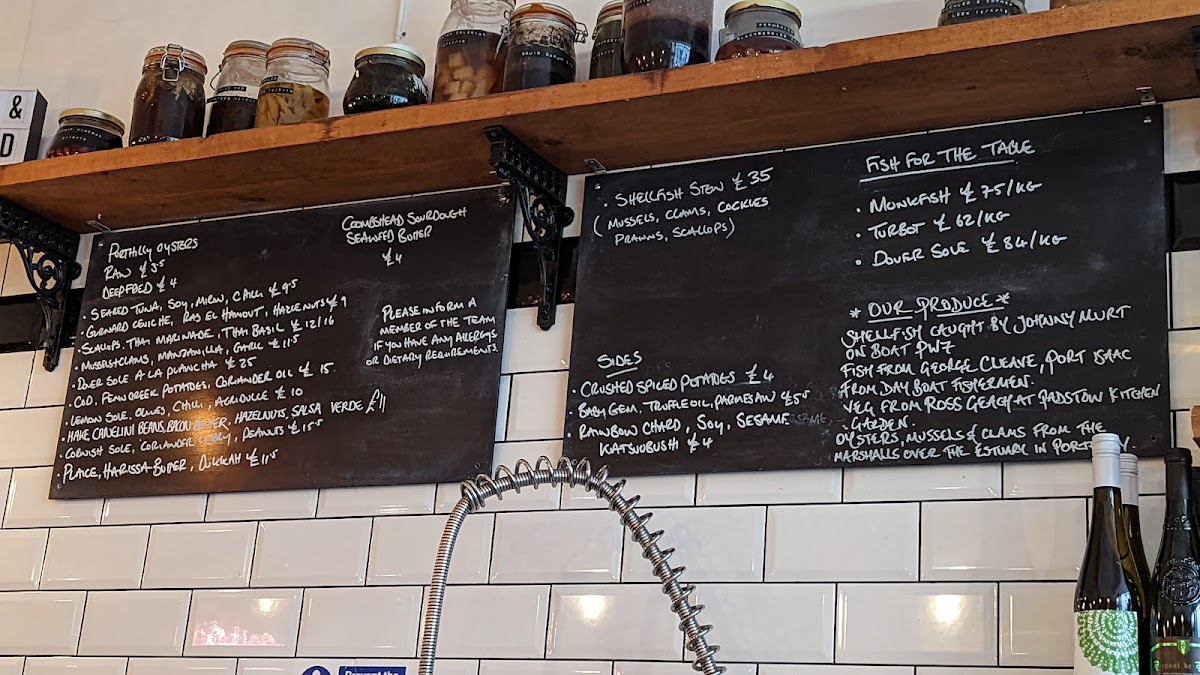 &
D
PORTHILLY OYSTERS
RAW £3.5
DEEP FRIED £4
COOMBSHEAD SOURDOUGH
SEAWEED BUTTER
£4
• SEARED TUNA, SOY, MIRIN, CHILLI £9.5
• GURNARD CEVICHE, RAS EL HANOUT, HAZELNUTS £9
SCALLOPS, THAI MARINADE, THAI BASIL £12/16
• MUSSELS & CLAMS, MANZANILLA, GARLIC £11.5
• DOVER SOLE A LA PLANCHA £25
• COD, FENUGREEK POTATOES, CORIANDER OIL £15
• LEMON SOLE, OLIVES, CHILLI, AGRIDULCE £10
• HAKE CANELINI BEANS, BACON BUTTER, HAZELNUTS, SALSA VERDE £11
• CORNISH SOLE, CORIANDER CURRY, PEANUTS £15.5
• PLAICE, HARISSA BUTTER, DUKKAH £11.5
PLEASE INFORM A
MEMBER OF THE TEAM
IF YOU HAVE ANY ALLERGYS
OR DIETARY REQUIREMENTS.
• SHELLFISH STEW £35
(MUSSELS, CLAMS, COCKLES
PRAWNS, SCALLOPS)
SIDES
• CRUSHED SPICED POTATOES £4
• BABY GEM, TRUFFLE OIL, PARMESAN £5.5
• RAINBOW CHARD, SOY, SESAME
KATSUOBUSHI £4
FISH FOR THE TABLE
• MONKFISH £75/KG
• TURBOT £62/KG
• DOVER SOLE £84/KG
* OUR PRODUCE *
SHELLFISH CAUGHT BY JOHNNY MURT
ON BOAT PW7
FISH FROM GEORGE CLEAVE, PORT ISAAC
FROM DAY BOAT FISHERMEN.
VEG FROM ROSS GERAGHTY AT PADSTOW KITCHEN
GARDEN.
OYSTERS, MUSSELS & CLAMS FROM THE
MARSHALLS OVER THE ESTUARY IN
Prevent the